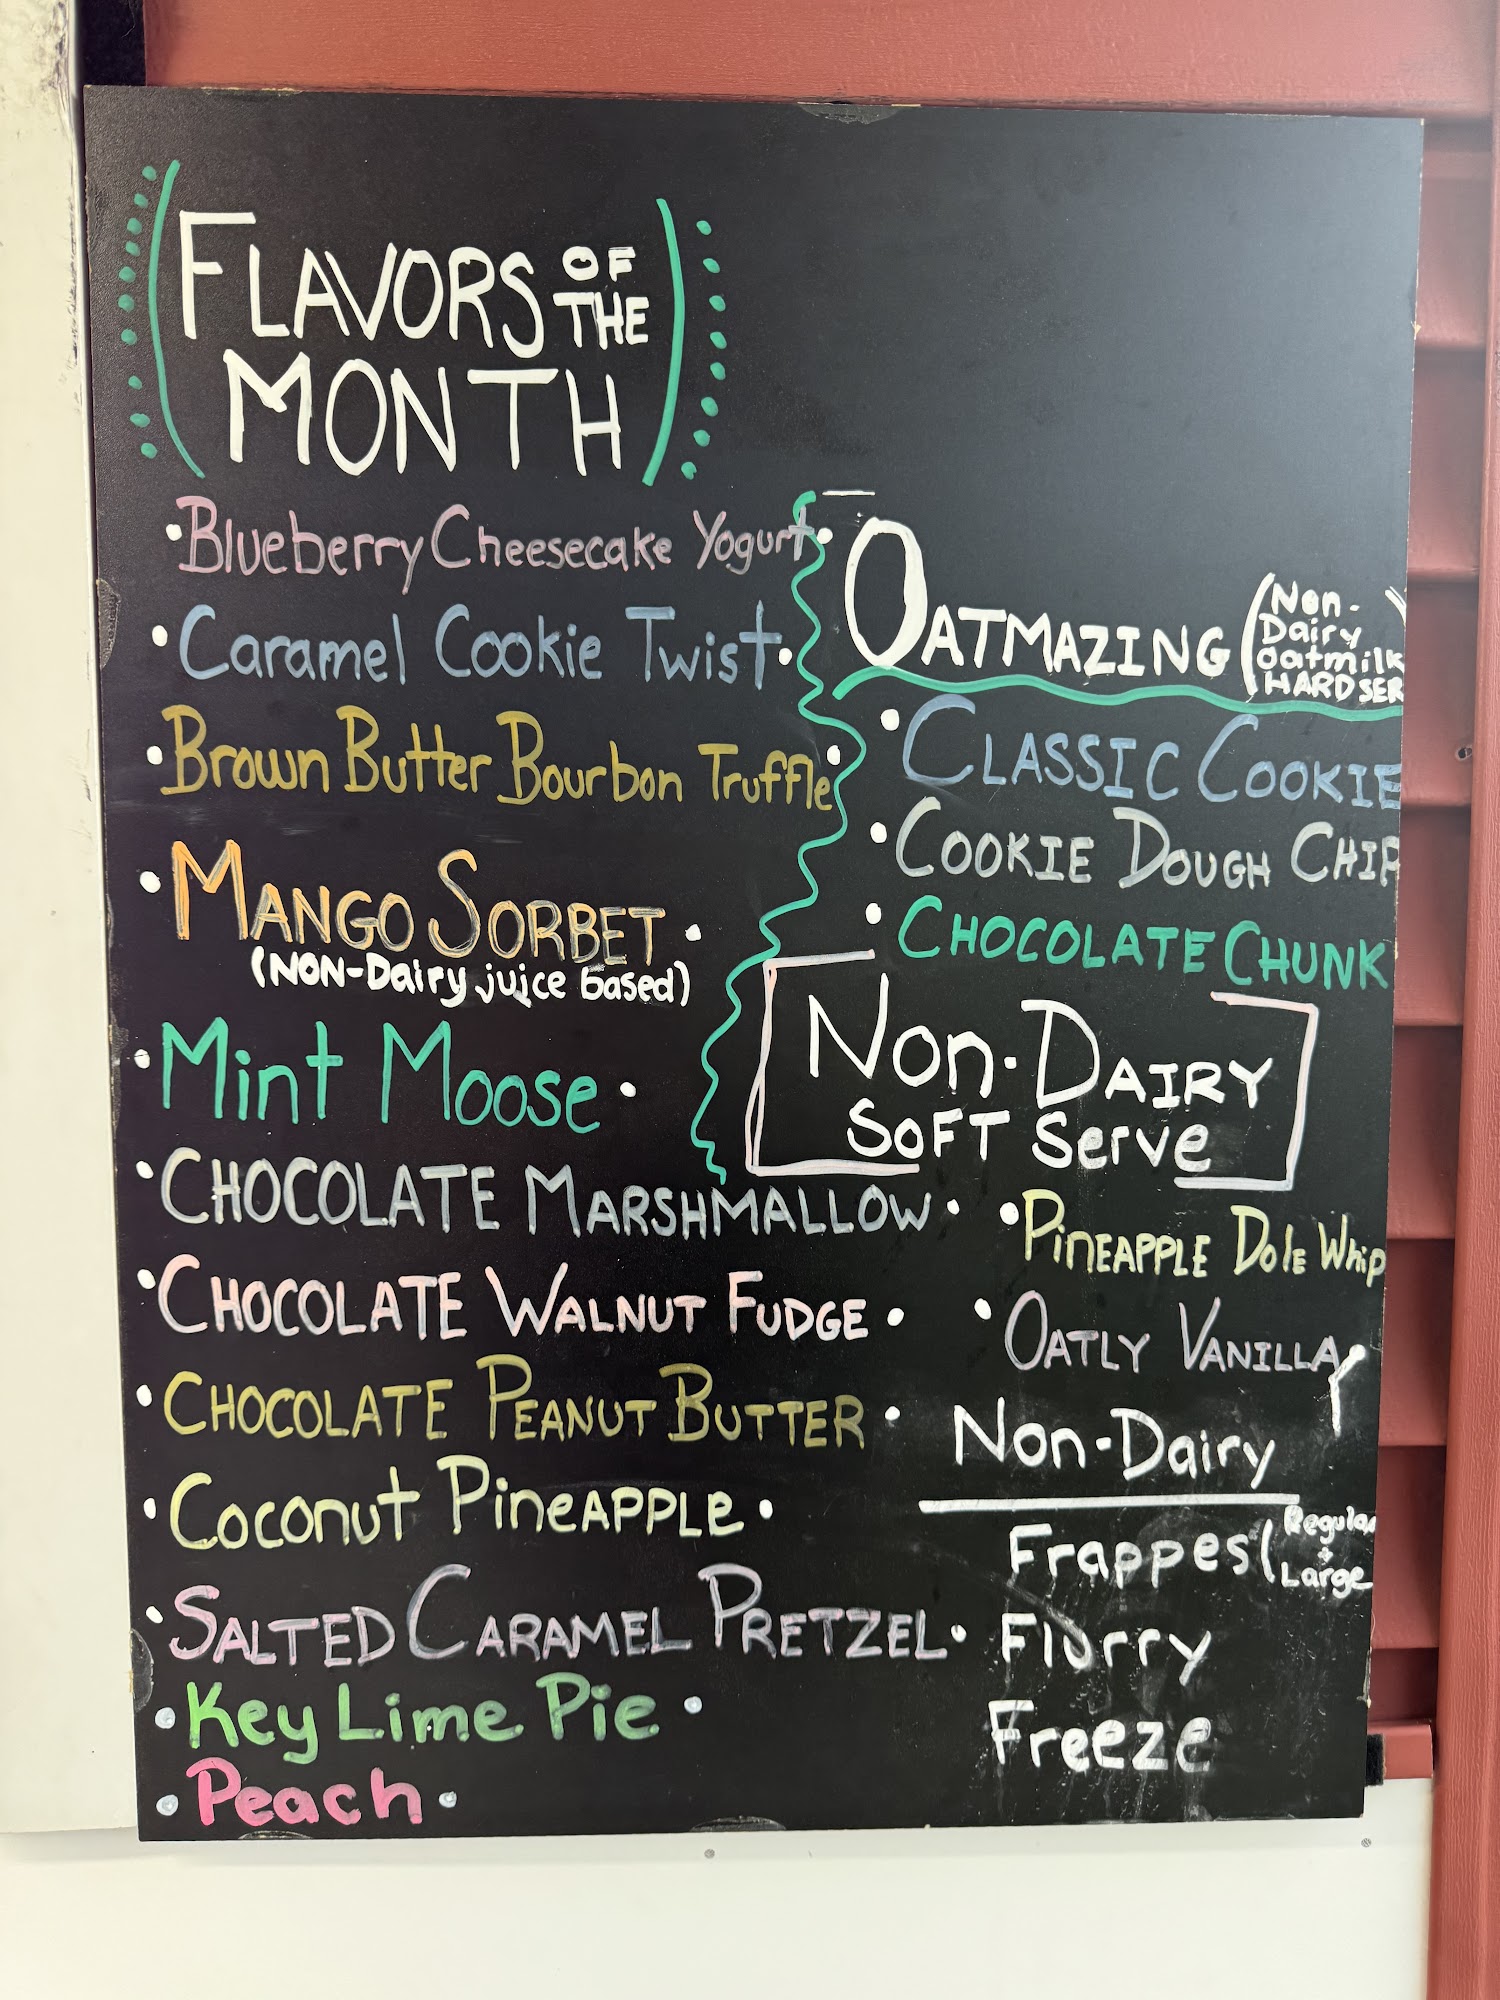 FLAVORS OF THE
MONTH
Blueberry Cheesecake Yogurt
Caramel Cookie Twist
Brown Butter Bourbon Truffle
MANGO SORBET
(NON-Dairy juice based)
Mint Moose
CHOCOLATE MARSHMALLOW
CHOCOLATE WALNUT FUDGE
CHOCOLATE PEANUT BUTTER
Coconut PineAPPLe
SALTED CARAMEL PRETZEL
Key Lime Pie
Peach
OATMAZING (Non-
Dairy
oatmilk
HARD SER
CLASSIC COOKIE
COOKIE DOUGH CHIP
CHOCOLATE CHUNK
Non-DAIRY
SOFT Serve
PiNEAPPLE Dole Whip
OATLY VANILLA
Non-Dairy
Frappes (Regular
+
Large
Flurry
Freeze